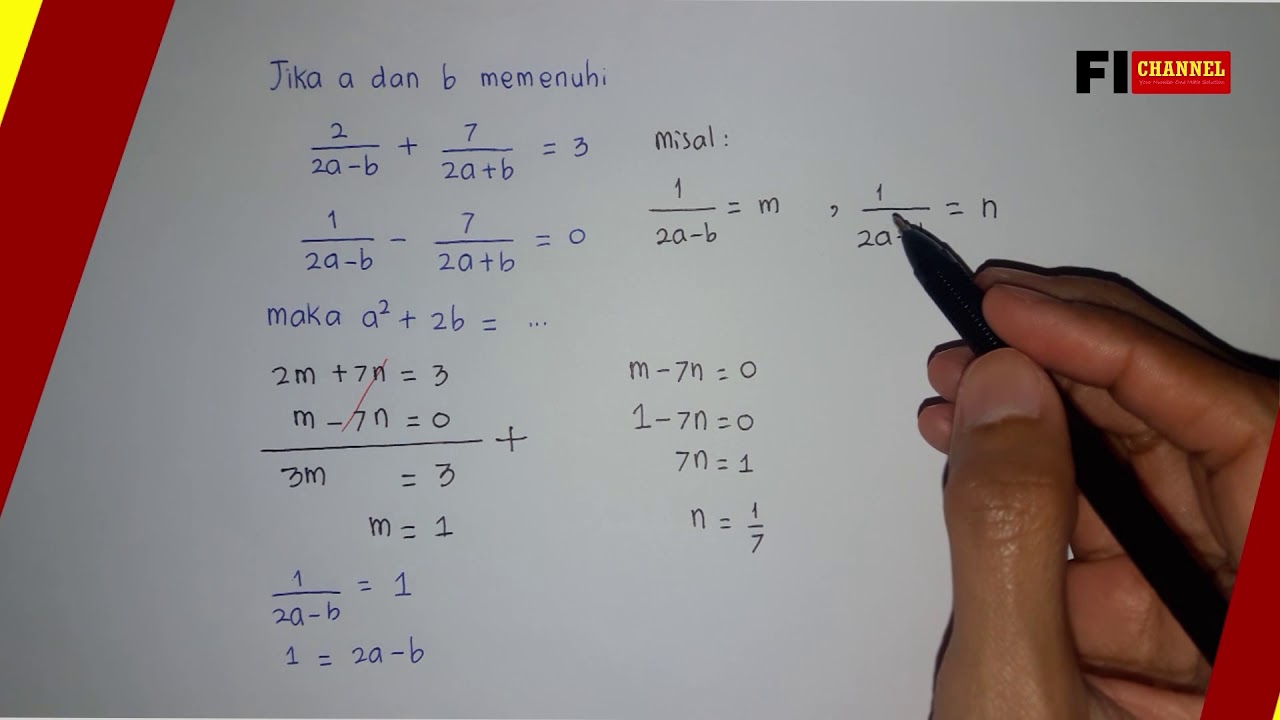 FI CHANNEL
Your Number One Math Solution
Jika a dan b memenuhi
2/(2a-b) + 7/(2a+b) = 3
1/(2a-b) - 7/(2a+b) = 0
maka a² + 2b = ...
misal:
1/(2a-b) = m , 1/2a = n
2m + 7n = 3
m - 7n = 0
+
3m = 3
m = 1
1/(2a-b) = 1
1 = 2a-b
m - 7n = 0
1 - 7n = 0
7n = 1
n = 1/7